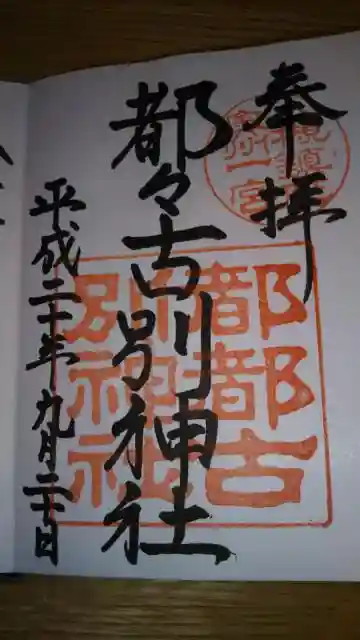 奉拝
一宮
都々古別神社
都都古
別神社
平成二十年九月二十日